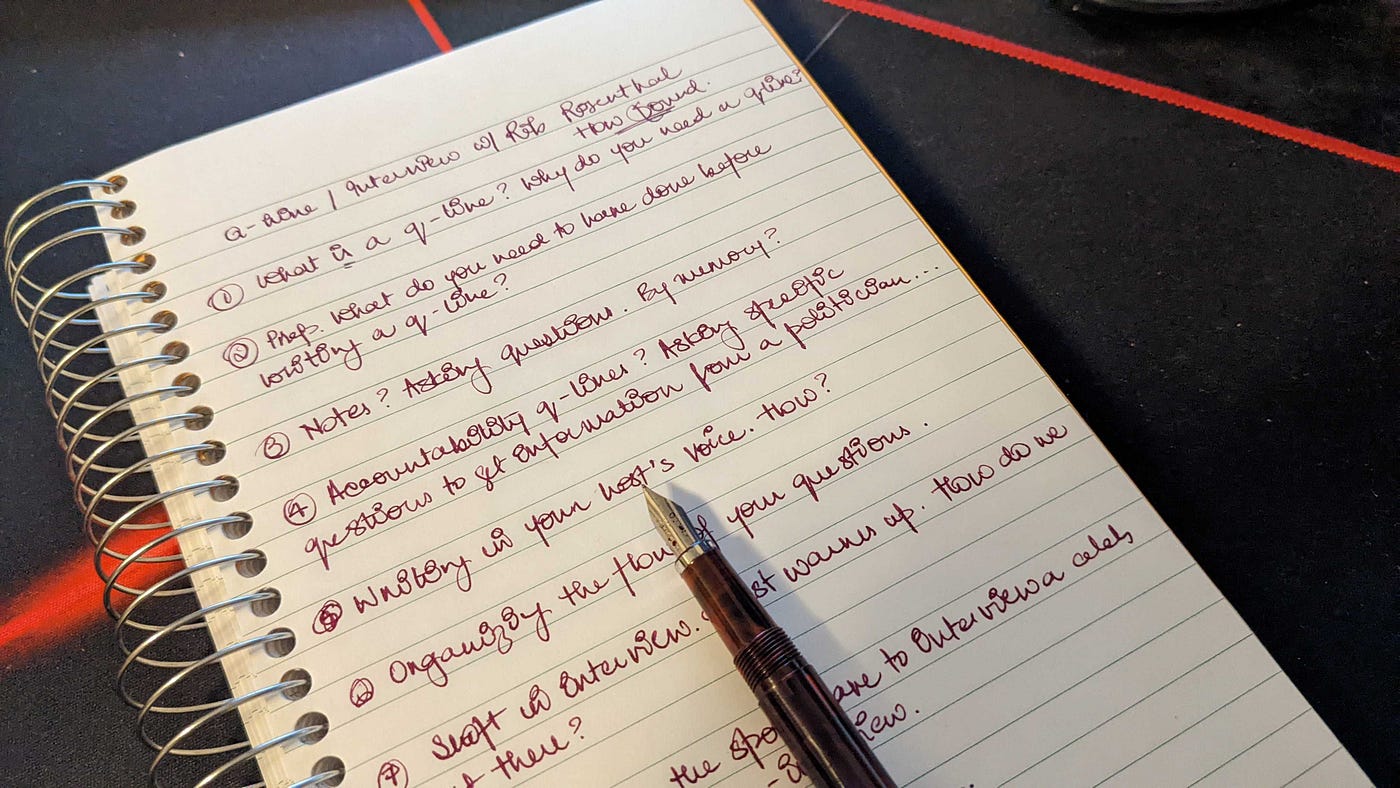 Q-line / Interview w/ Rob Rosenthal
How Sound.
① What is a q-line? Why do you need a q-line?
② Prep. What do you need to have done before
writing a q-line?
③ Notes? Asking questions. By memory?
④ Accountability q-lines? Asking specific
questions to get information from a politician....
⑤ Writing in your host's voice. How?
⑥ Organizing the flow of your questions.
⑦ Shift in interview. warms up. How do we
there?
the are to interview a celeb